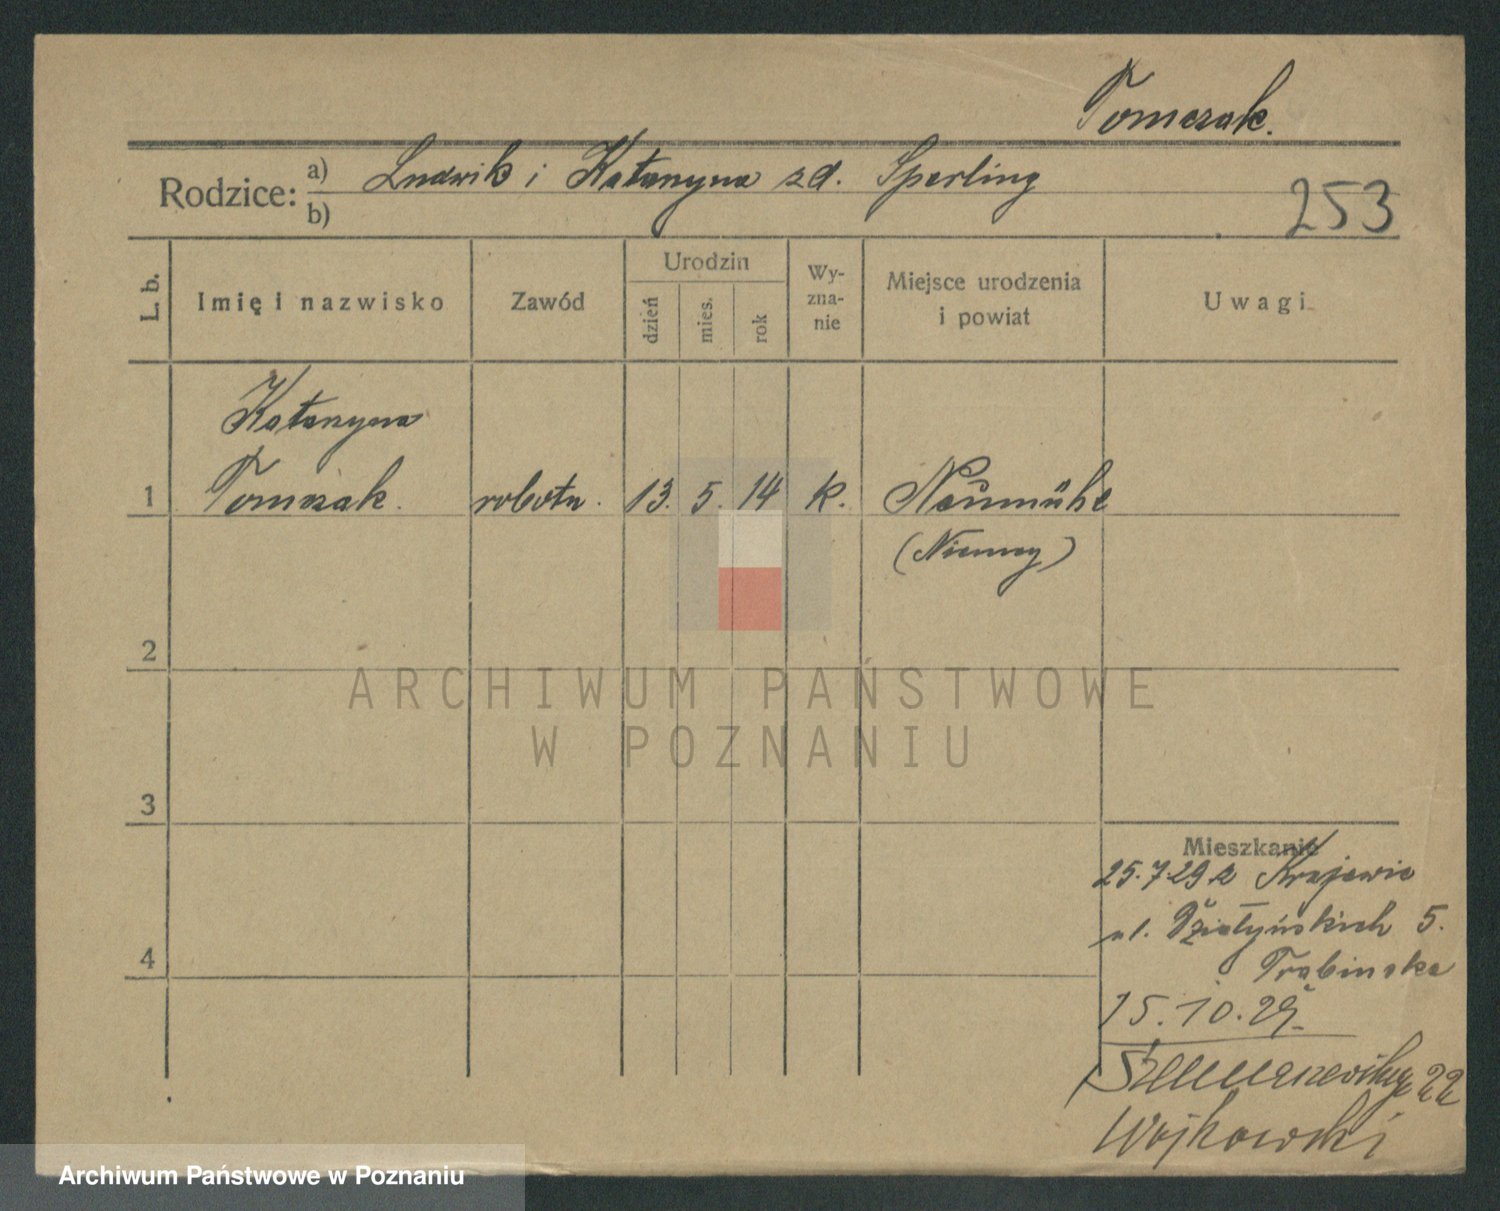 Tomczak.
Rodzice: a) Ludwik i Katarzyna zd. Sperling
b)
253
L. b.
Imię i nazwisko
Zawód
Urodzin
dzień
mies.
rok
Wy-
zna-
nie
Miejsce urodzenia
i powiat
Uwagi
Katarzyna
1 Tomczak. robotn. 13. 5. 14 k. Neumühl
(Niemcy)
2
ARCHIWUM PAŃSTWOWE
W POZNANIU
3
Mieszkanie
25.7.29 z
ul. Działyńskich 5.
4
Trąbinska
15.10.29.
22
Wojkowski
Archiwum Państwowe w Poznaniu